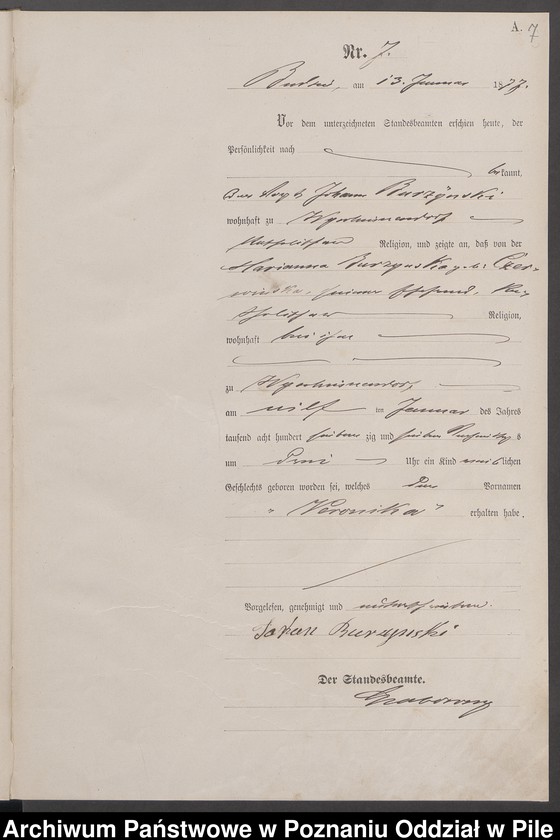 A. 7
Nr. 7.
am 13. Januar 1877.
Vor dem unterzeichneten Standesbeamten erschien heute, der
Persönlichkeit nach
bekannt,
Johann Burzynski
wohnhaft zu
katholischer Religion, und zeigte an, daß von der
Marianna Burzynska geb. Czer-
winska, seiner Ehefrau, ka-
tholischer Religion,
wohnhaft bei ihm
zu
am elf ten Januar des Jahres
tausend acht hundert sieben zig und sieben Nachmittags
um drei Uhr ein Kind weiblichen
Geschlechts geboren worden sei, welches den Vornamen
"Veronika" erhalten habe.
Vorgelesen, genehmigt und unterschrieben.
Johan Burzynski
Der Standesbeamte.
Archiwum Państwowe w Poznaniu Oddział w Pile